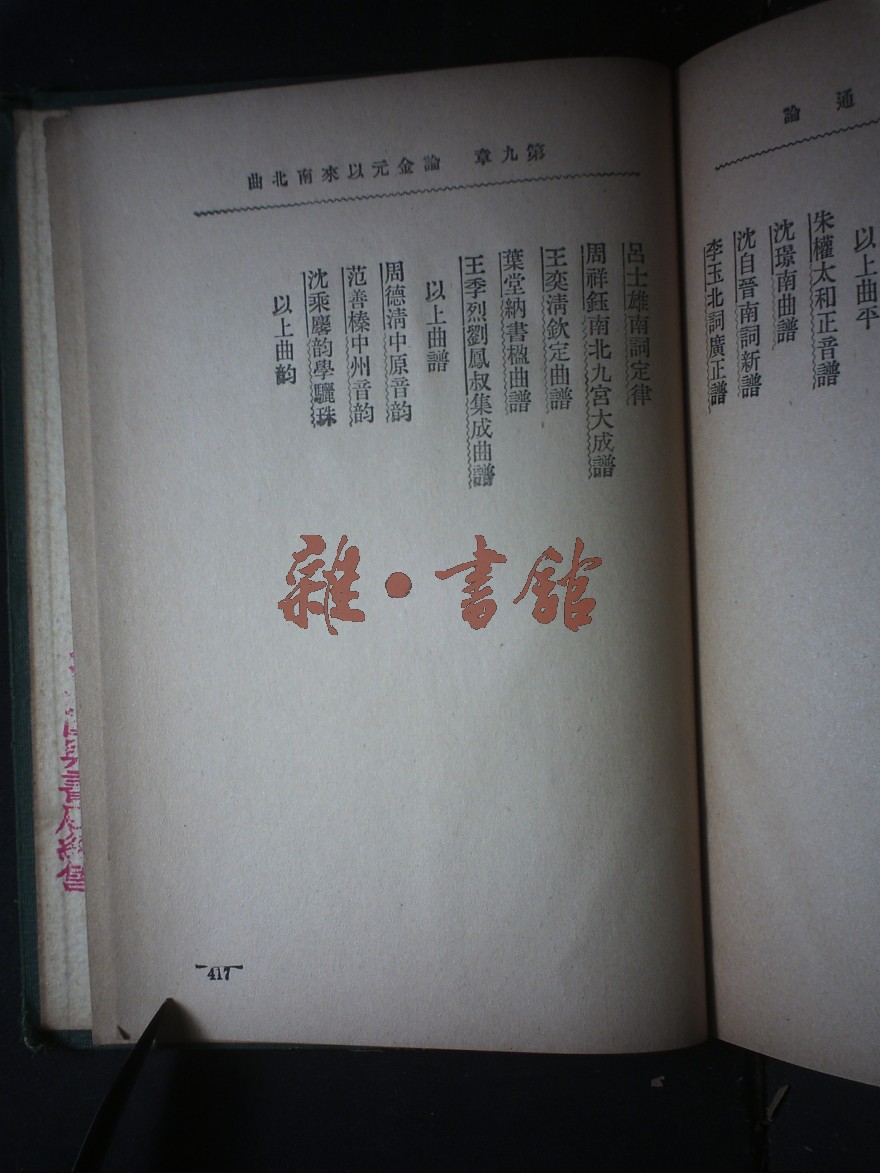 通論
以上曲平
朱權太和正音譜
沈璟南曲譜
沈自晉南詞新譜
李玉北詞廣正譜
第九章 論金元以來南北曲
呂士雄南詞定律
周祥鈺南北九宮大成譜
王奕清欽定曲譜
葉堂納書楹曲譜
王季烈劉鳳叔集成曲譜
以上曲譜
周德清中原音韵
范善榛中州音韵
沈乘麐韵學驪珠
以上曲韵
417
雜·書館